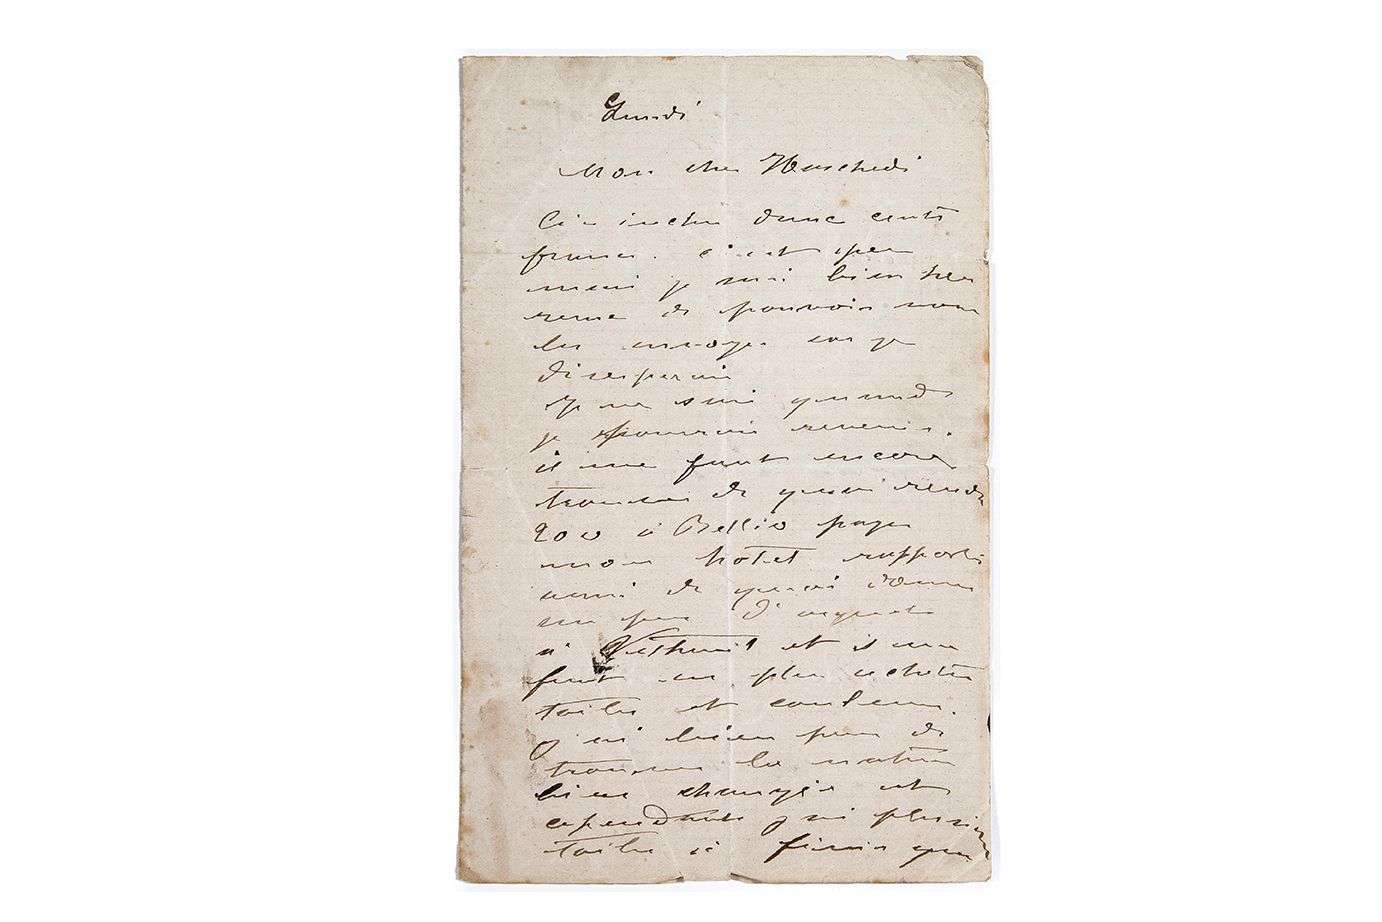 Lundi
Mon cher Hoschedé
Ci inclu deux cents
francs. c'est peu
mais je suis bien heu
reux de pouvoir vous
les envoyer car je
désespérais
Je ne sais quand
je pourrai revenir.
il me faut encore
trouver de quoi rendre
200 à Bellio payer
mon hôtel rapporter
aussi de quoi donner
un peu d'argent
à Vétheuil et il me
faut en plus acheter
toiles et couleurs.
j'ai bien peur de
trouver la nature
bien changée et
cependant j'ai plusieurs
toiles à finir que